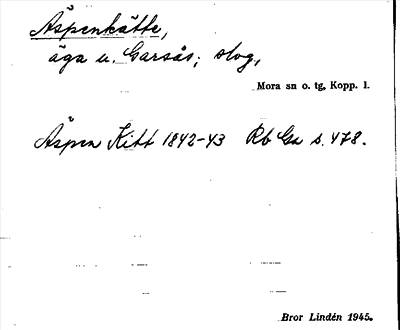 Äspenkätte,
äga u. Garsås; skog,
Mora sn o. tg, Kopp. l.
Äspen Kitt 1842-43 Rb Ga s. 478.
Bror Lindén 1945.